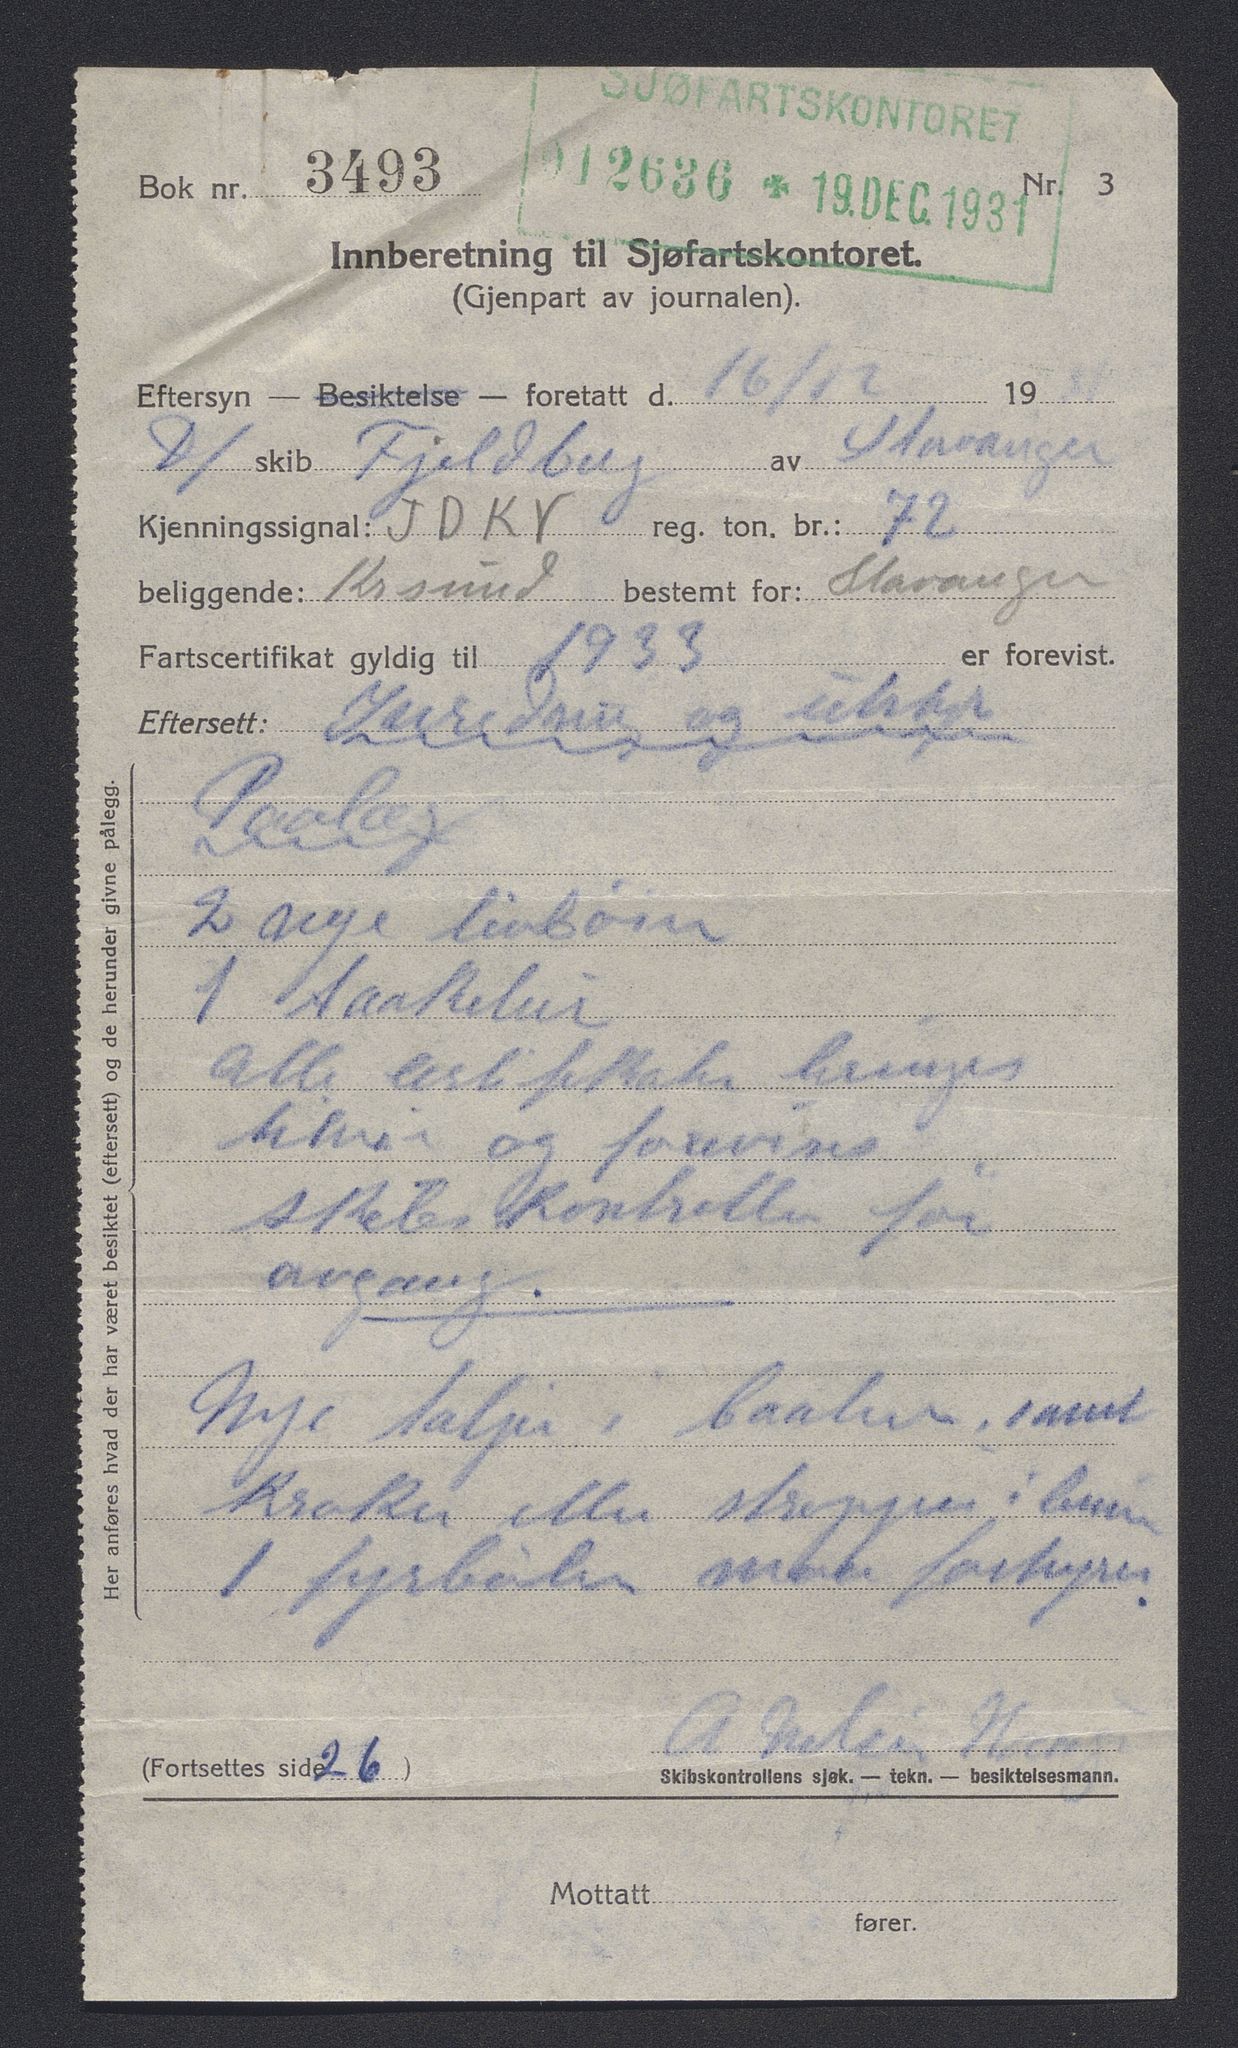 SJØFARTSKONTORET
012636 * 19.DEC.1931
Bok nr. 3493 Nr. 3
Innberetning til Sjøfartskontoret.
(Gjenpart av journalen).
Eftersyn — Besiktelse — foretatt d. 16/12 1931
D/ skib Fjeldberg av Stavanger
Kjenningssignal: JDKV reg. ton. br.: 72
beliggende: Krsund bestemt for: Stavanger
Fartscertifikat gyldig til 1933 er forevist.
Eftersett: og utstyr
Her anføres hvad der har været besiktet (eftersett) og de herunder givne pålegg.
Paalæg
2 nye livbøier
1 taakelur
alle certifikater bringes
og forevises
skibskontrollen før
avgang.
Nye taljer i baaten, samt
kroker eller stropper i
1 fyrbøter maa forhyres.
A Nelsin
(Fortsettes side 26)
Skibskontrollens sjøk. — tekn. — besiktelsesmann.
Mottatt
fører.